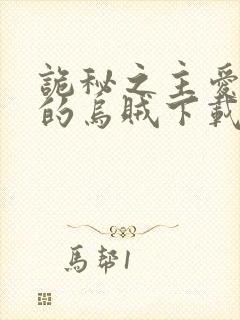 詭秘之主愛
的烏賊下載
馬幫1